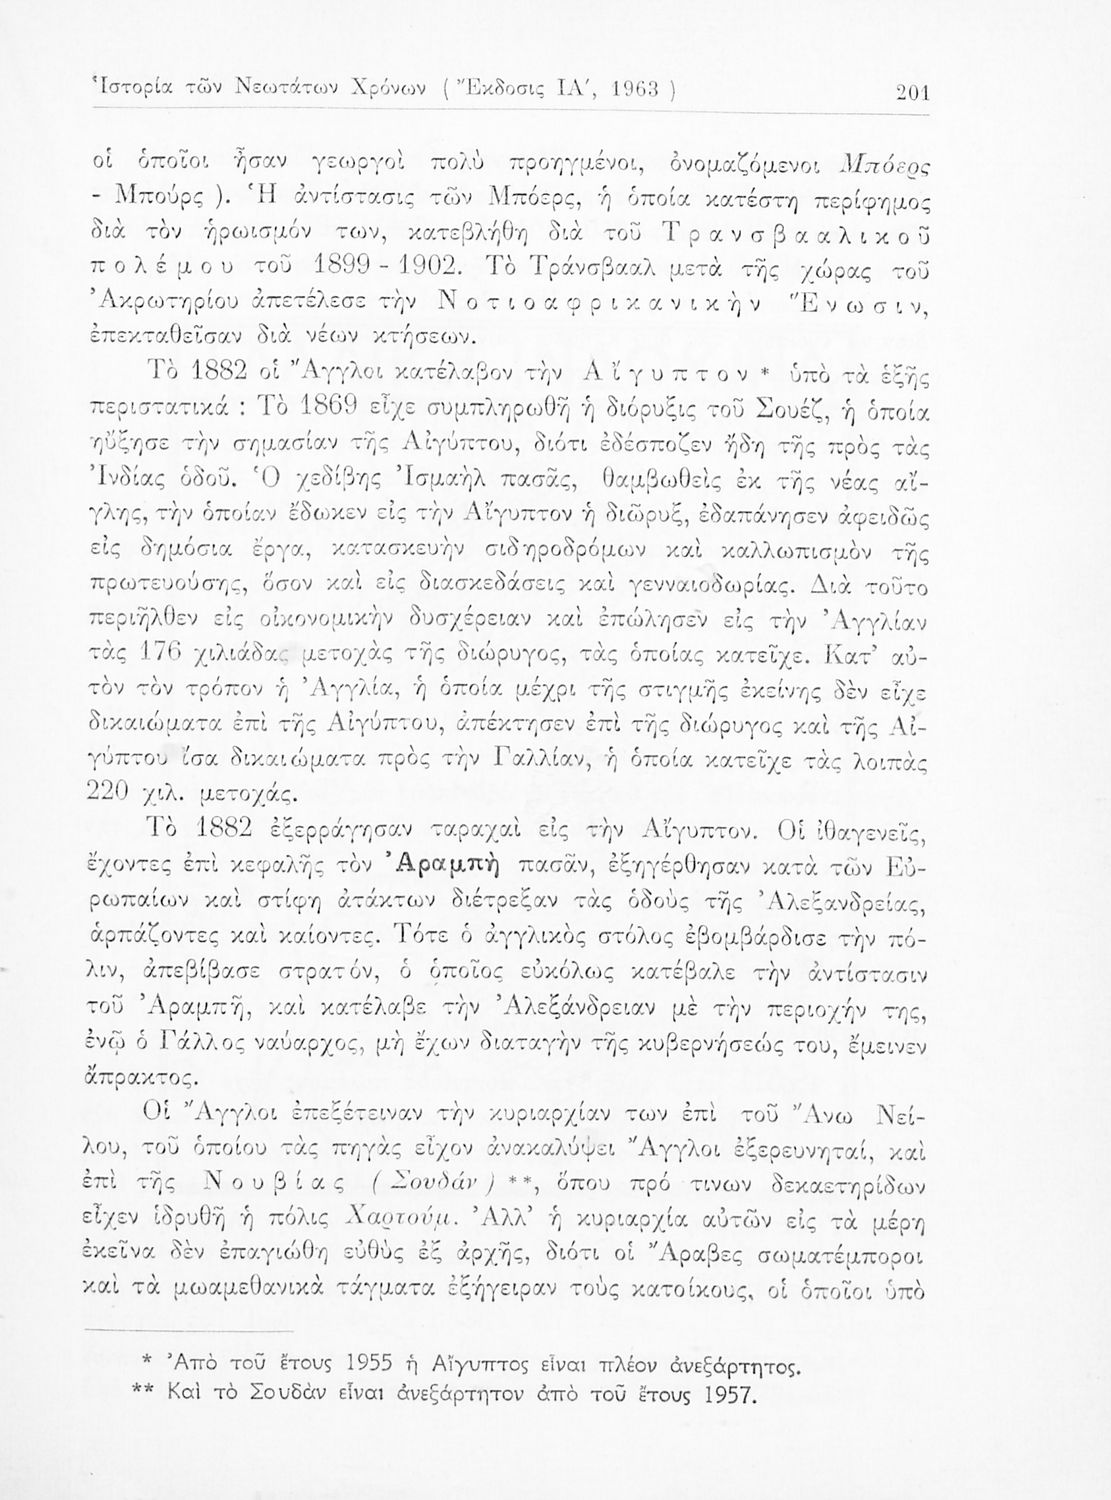 Ἱστορία τῶν Νεωτάτων Χρόνων ( Ἔκδοσις ΙΑ', 1963 ) 201
οἱ ὁποῖοι ἦσαν γεωργοὶ πολὺ προηγμένοι, ὀνομαζόμενοι Μπόερς
- Μπούρς ). Ἡ ἀντίστασις τῶν Μπόερς, ἡ ὁποία κατέστη περίφημος
διὰ τὸν ἡρωισμόν των, κατεβλήθη διὰ τοῦ Τρανσβααλικοῦ
πολέμου τοῦ 1899 - 1902. Τὸ Τράνσβααλ μετὰ τῆς χώρας τοῦ
Ἀκρωτηρίου ἀπετέλεσε τὴν Νοτιοαφρικανικὴν Ἕνωσιν,
ἐπεκταθεῖσαν διὰ νέων κτήσεων.
Τὸ 1882 οἱ Ἄγγλοι κατέλαβον τὴν Αἴγυπτον * ὑπὸ τὰ ἑξῆς
περιστατικά : Τὸ 1869 εἶχε συμπληρωθῆ ἡ διόρυξις τοῦ Σουέζ, ἡ ὁποία
ηὔξησε τὴν σημασίαν τῆς Αἰγύπτου, διότι ἐδέσποζεν ἤδη τῆς πρὸς τὰς
Ἰνδίας ὁδοῦ. Ὁ χεδίβης Ἰσμαὴλ πασᾶς, θαμβωθεὶς ἐκ τῆς νέας αἴ-
γλης, τὴν ὁποίαν ἔδωκεν εἰς τὴν Αἴγυπτον ἡ διῶρυξ, ἐδαπάνησεν ἀφειδῶς
εἰς δημόσια ἔργα, κατασκευὴν σιδηροδρόμων καὶ καλλωπισμὸν τῆς
πρωτευούσης, ὅσον καὶ εἰς διασκεδάσεις καὶ γενναιοδωρίας. Διὰ τοῦτο
περιῆλθεν εἰς οἰκονομικὴν δυσχέρειαν καὶ ἐπώλησεν εἰς τὴν Ἀγγλίαν
τὰς 176 χιλιάδας μετοχὰς τῆς διώρυγος, τὰς ὁποίας κατεῖχε. Κατ' αὐ-
τὸν τὸν τρόπον ἡ Ἀγγλία, ἡ ὁποία μέχρι τῆς στιγμῆς ἐκείνης δὲν εἶχε
δικαιώματα ἐπὶ τῆς Αἰγύπτου, ἀπέκτησεν ἐπὶ τῆς διώρυγος καὶ τῆς Αἰ-
γύπτου ἴσα δικαιώματα πρὸς τὴν Γαλλίαν, ἡ ὁποία κατεῖχε τὰς λοιπὰς
220 χιλ. μετοχάς.
Τὸ 1882 ἐξερράγησαν ταραχαὶ εἰς τὴν Αἴγυπτον. Οἱ ἰθαγενεῖς,
ἔχοντες ἐπὶ κεφαλῆς τὸν Ἀραμπὴ πασᾶν, ἐξηγέρθησαν κατὰ τῶν Εὐ-
ρωπαίων καὶ στίφη ἀτάκτων διέτρεξαν τὰς ὁδοὺς τῆς Ἀλεξανδρείας,
ἁρπάζοντες καὶ καίοντες. Τότε ὁ ἀγγλικὸς στόλος ἐβομβάρδισε τὴν πό-
λιν, ἀπεβίβασε στρατόν, ὁ ὁποῖος εὐκόλως κατέβαλε τὴν ἀντίστασιν
τοῦ Ἀραμπῆ, καὶ κατέλαβε τὴν Ἀλεξάνδρειαν μὲ τὴν περιοχήν της,
ἐνῷ ὁ Γάλλος ναύαρχος, μὴ ἔχων διαταγὴν τῆς κυβερνήσεώς του, ἔμεινεν
ἄπρακτος.
Οἱ Ἄγγλοι ἐπεξέτειναν τὴν κυριαρχίαν των ἐπὶ τοῦ Ἄνω Νεί-
λου, τοῦ ὁποίου τὰς πηγὰς εἶχον ἀνακαλύψει Ἄγγλοι ἐξερευνηταί, καὶ
ἐπὶ τῆς Νουβίας ( Σουδάν ) **, ὅπου πρό τινων δεκαετηρίδων
εἶχεν ἱδρυθῆ ἡ πόλις Χαρτούμ. Ἀλλ' ἡ κυριαρχία αὐτῶν εἰς τὰ μέρη
ἐκεῖνα δὲν ἐπαγιώθη εὐθὺς ἐξ ἀρχῆς, διότι οἱ Ἄραβες σωματέμποροι
καὶ τὰ μωαμεθανικὰ τάγματα ἐξήγειραν τοὺς κατοίκους, οἱ ὁποῖοι ὑπὸ
* Ἀπὸ τοῦ ἔτους 1955 ἡ Αἴγυπτος εἶναι πλέον ἀνεξάρτητος.
** Καὶ τὸ Σουδὰν εἶναι ἀνεξάρτητον ἀπὸ τοῦ ἔτους 1957.